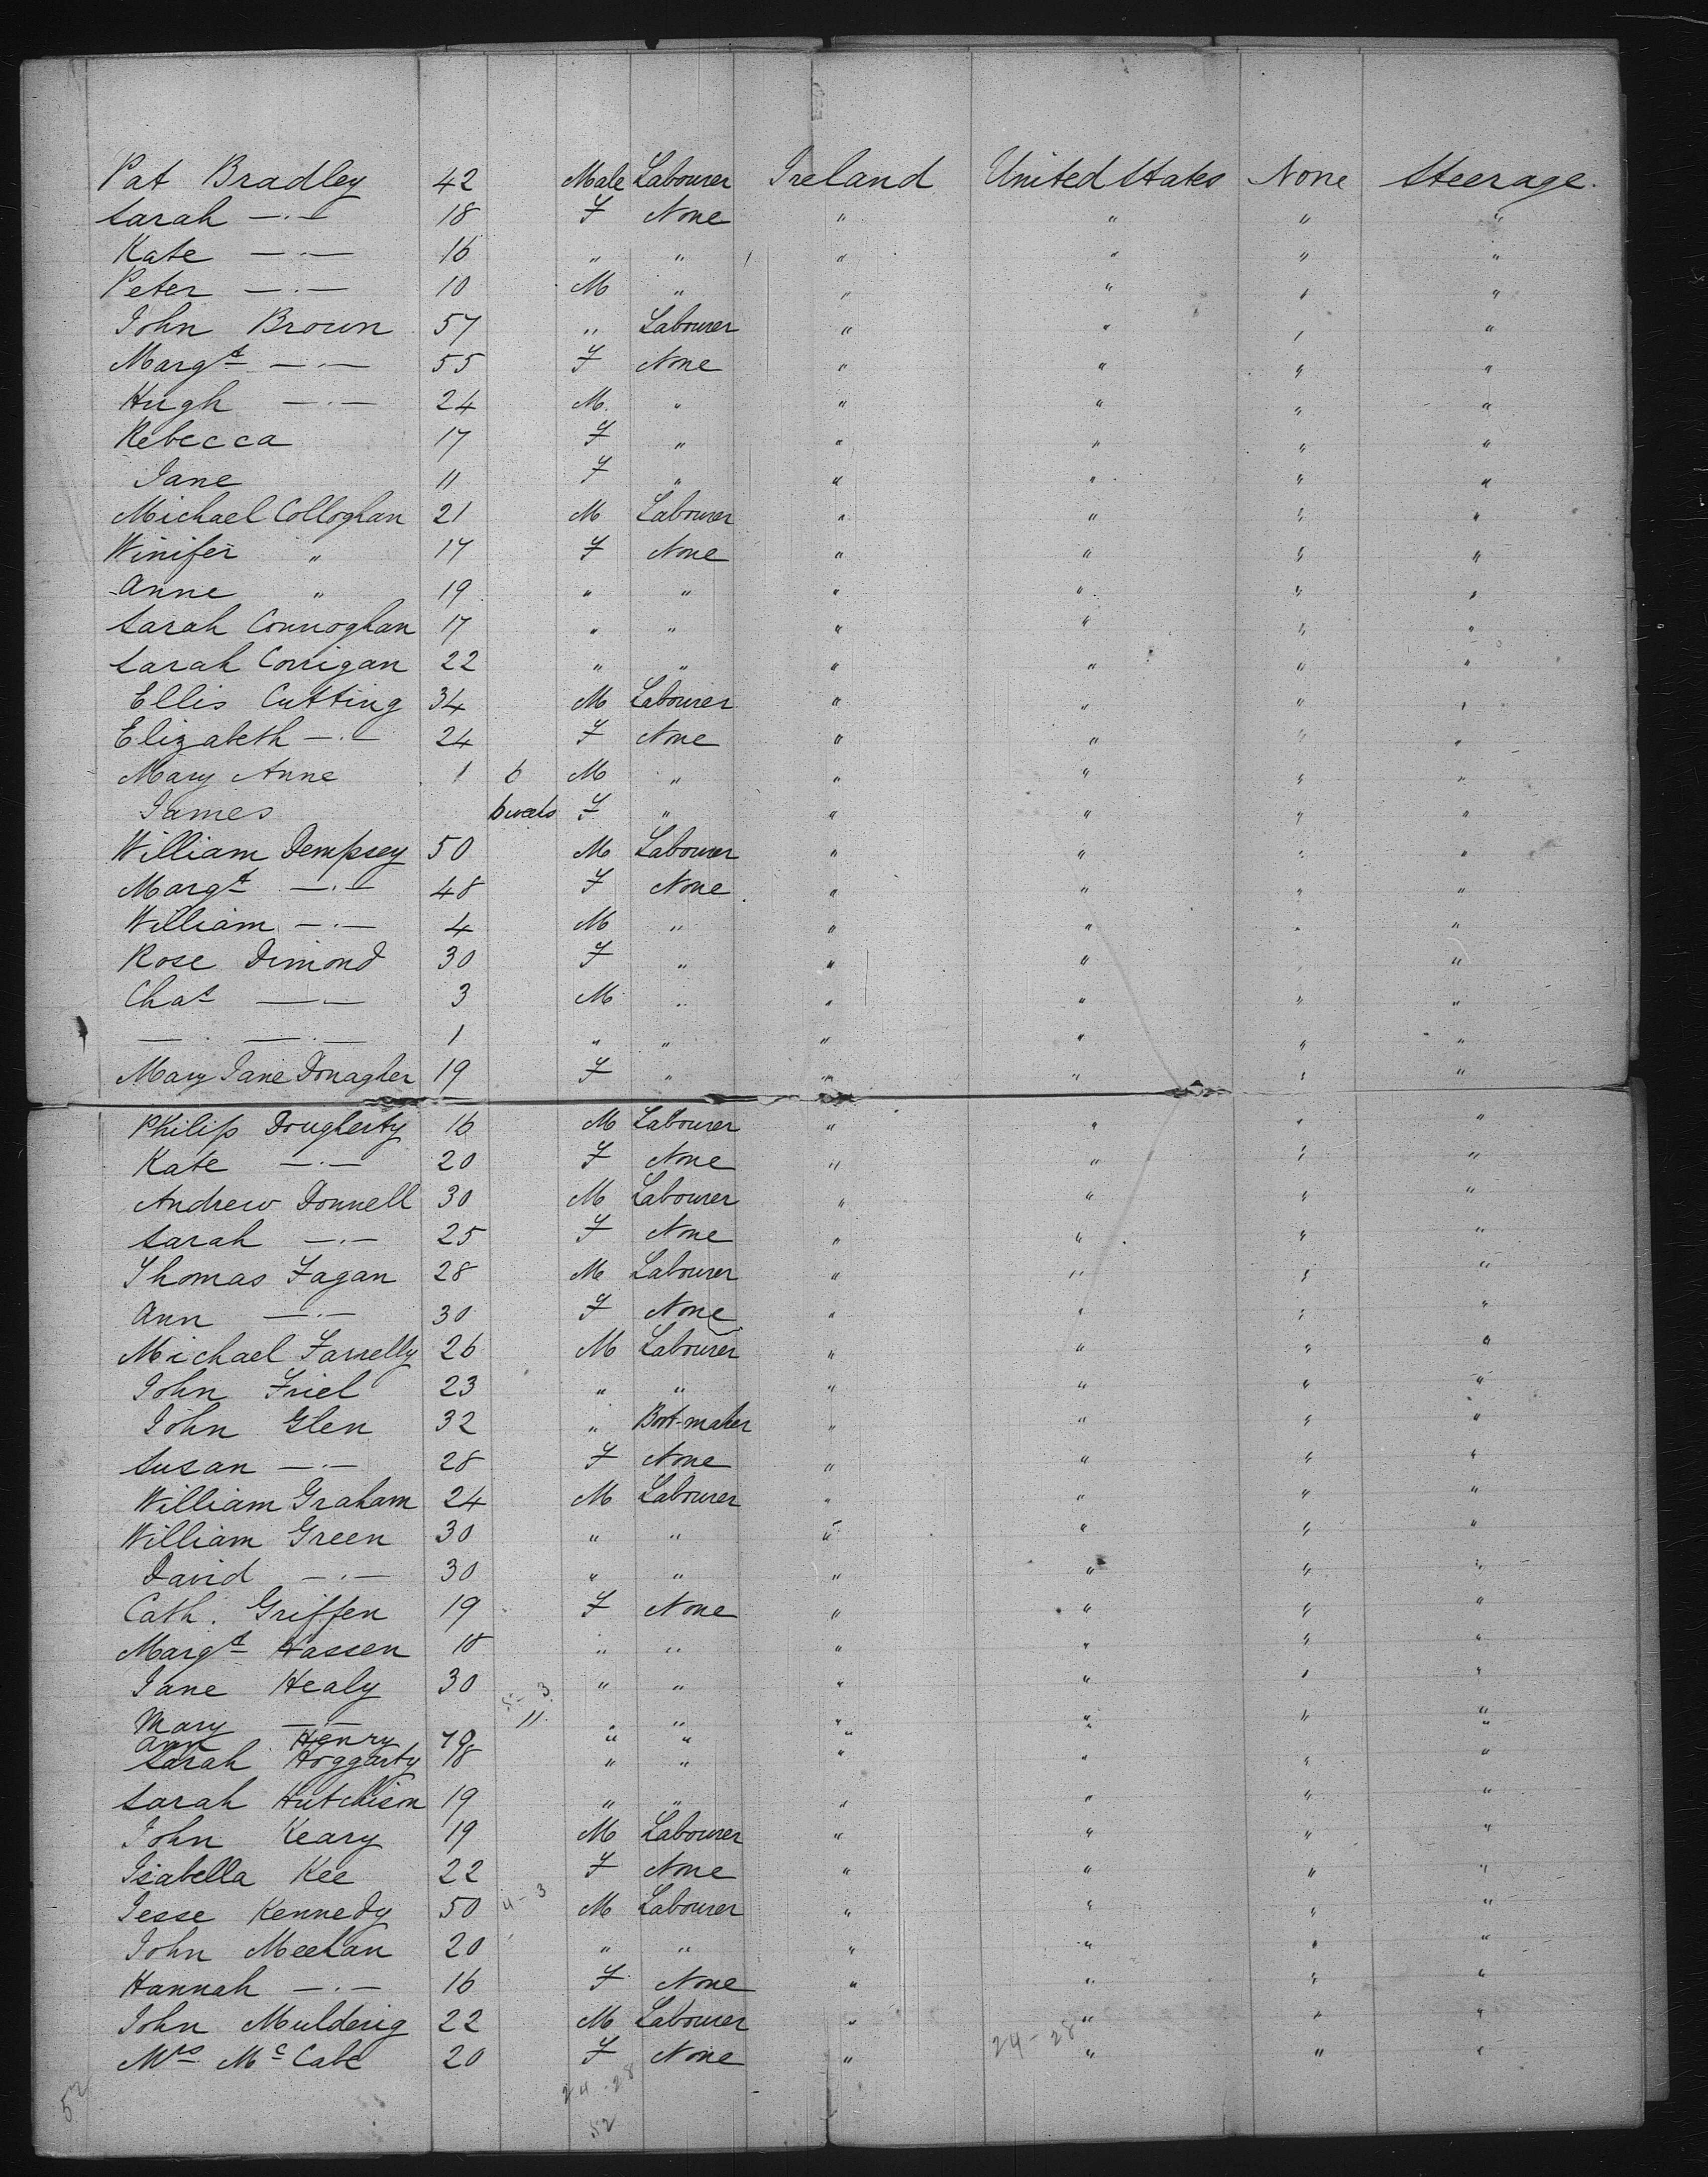 Pat Bradley 42 Male Labourer Ireland United States None Steerage.
Sarah —·— 18 F None " " " "
Kate —·— 16 " " " " " "
Peter —·— 10 M " " " " "
John Brown 57 " Labourer " " " "
Margt —·— 55 F None " " " "
Hugh —·— 24 M. " " " " "
Rebecca 17 F " " " " "
Jane 11 F " " " " "
Michael Colloghan 21 M Labourer " " " "
Winifer " 17 F None " " " "
Anne " 19 " " " " " "
Sarah Connoghan 17 " " " " " "
Sarah Corrigan 22 " " " " " "
Ellis Cutting 34 M Labourer " " " "
Elizabeth —·— 24 F None " " " "
Mary Anne 1 6 M " " " " "
James 6 weeks F " " " " "
William Dempsey 50 M Labourer " " " "
Margt —·— 48 F None " " " "
William —·— 4 M " " " " "
Rose Dimond 30 F " " " " "
Chas —·— 3 M " " " " "
—·— —·— 1 " " " " " "
Mary Jane Donagher 19 F " " " " "
Philip Dougherty 16 M Labourer " " " "
Kate —·— 20 F None " " " "
Andrew Donnell 30 M Labourer " " " "
Sarah —·— 25 F None " " " "
Thomas Fagan 28 M Labourer " " " "
Ann —·— 30 F None " " " "
Michael Farrelly 26 M Labourer " " " "
John Friel 23 " " " " " "
John Glen 32 " Boot-maker " " " "
Susan —·— 28 F None " " " "
William Graham 24 M Labourer " " " "
William Green 30 " " " " " "
David —·— 30 " " " " " "
Cath. Griffen 19 F None " " " "
Margt Hassen 18 " " " " " "
Jane Healy 30 " " " " " "
5 - 3
Mary —— 11 " " " " " "
Ann Henry 19 " " " " "
Sarah Hoggarty 18 " " " " " "
Sarah Hutchison 19 " " " " " "
John Keary 19 M Labourer " " " "
Isabella Kee 22 F None " " " "
Jesse Kennedy 50 4 - 3 M Labourer " " " "
John Meehan 20 " " " " " "
Hannah —·— 16 F None " " " "
John Mulderig 22 M Labourer " " " "
24-28
Mrs McCabe 20 F None " " " "
52 24-28
52